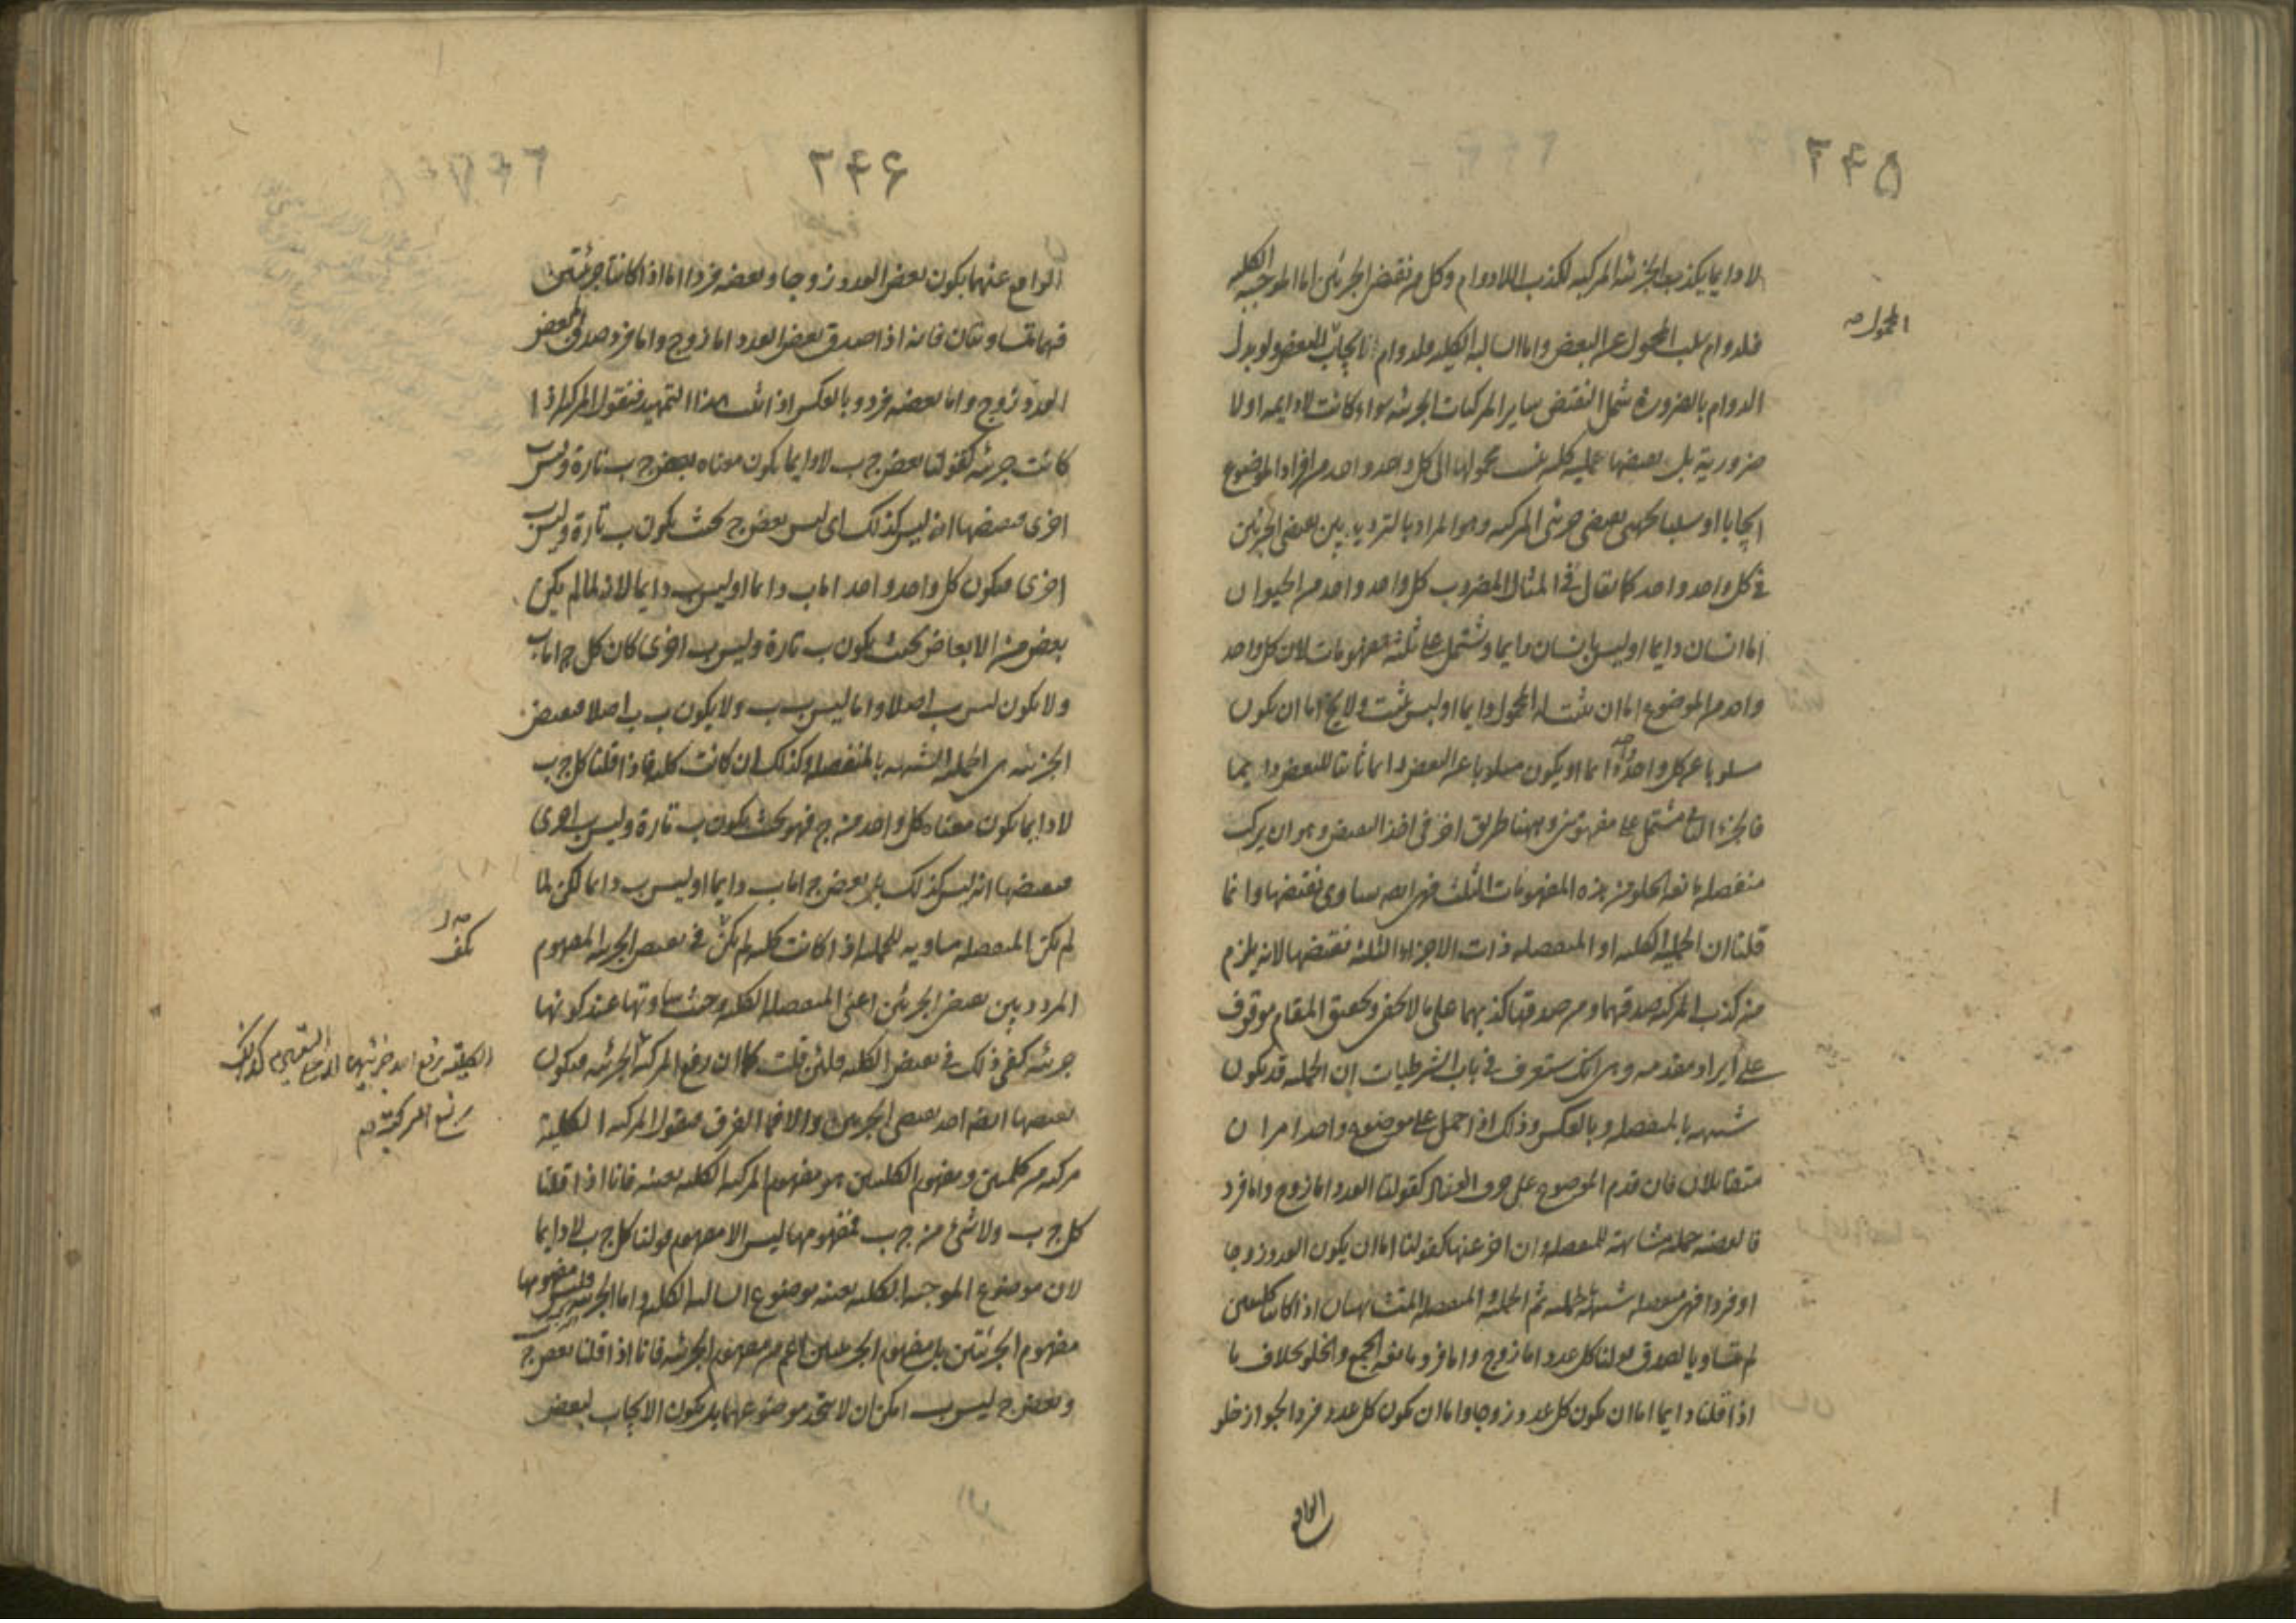 ۲۴۵
لا دايما يكذب الجزئية المركبة لكذب اللادوام وكل من نقيض الجزئين اما الموجبة الكلية
فلدوام سلب المحمول عن البعض واما السالبة الكلية فلدوام ايجاب المحمول للبعض ولو بدل
المحمول صح
الدوام بالضرورة شمل النقيض ساير المركبات الجزئية سواء كانت لا دايمة او لا
ضرورية بل نقيضها حملية كلية نسب محمولها الى كل واحد واحد من افراد الموضوع
ايجابا او سلبا بجهتي نقيضي جزئي المركبة وهو المراد بالترديد بين نقيضي الجزئين
في كل واحد واحد كما يقال في المثال المضروب كل واحد واحد من الحيوان
اما انسان دايما او ليس بانسان دايما وتشتمل على ثلثة مفهومات لان كل واحد
واحد من الموضوع اما ان يثبت له المحمول دايما او ليس يثبت ولا يخ اما ان يكون
مسلوبا عن كل واحد دايما او يكون مسلوبا عن البعض دايما ثابتا للبعض دايما
فالجزء الثاني مشتمل على مفهومين وههنا طريق اخر في اخذ النقيض وهو ان يركب
منفصلة مانعة الخلو من هذه المفهومات الثلث فهي ايضا يساوى نقيضها وانما
قلنا ان الحملية الكلية او المنفصلة ذات الاجزاء الثلثة نقيضها لانه يلزم
من كذب المركبة صدقهما ومن صدقها كذبهما على ما لا يخفى وتحقيق المقام موقوف
على ايراد مقدمة وهي انك ستعرف في باب الشرطيات ان الحملية قد يكون
شبيهة بالمنفصلة وبالعكس وذلك اذا حمل على موضوع واحد امران
متقابلان فان قدم الموضوع على حرف العناد كقولنا العدد اما زوج واما فرد
فالقضية حملية مشابهة للمنفصلة وان اخر عنها كقولنا اما ان يكون العدد زوجا
او فردا فهي منفصلة شبيهة بالحملية ثم الحملية والمنفصلة المتشابهتان اذا كانتا كليتين
لم تتساويا لصدق قولنا كل عدد اما زوج واما فرد مانعة الجمع والخلو بخلاف ما
اذا قلنا دايما اما ان يكون كل عدد زوجا واما ان يكون كل عدد فردا لجواز خلو
الواقع
۲۴۶
الواقع عنهما بكون بعض العدد زوجا وبعضه فردا اما اذا كانتا جزئيتين
فهما متساويتان فانه اذا صدق بعض العدد اما زوج واما فرد صدق اما بعض
العدد زوج واما بعضه فرد وبالعكس اذا ثبت هذا التمهيد فنقول المركبة اذا
كانت جزئية كقولنا بعض ج ب لا دايما يكون معناه بعض ج ب تارة وليس ب
اخرى فنقيضها انه ليس كذلك اى ليس بعض ج بحيث يكون ب تارة وليس ب
اخرى فيكون كل واحد واحد اما ب دايما او ليس ب دايما لانه لما لم يكن
بعض من الابعاض بحيث يكون ب تارة وليس ب اخرى كان كل ج اما ب
ولا يكون ليس ب اصلا واما ليس ب ولا يكون ب اصلا فنقيض
الجزئية هى الحملية الشبيهة بالمنفصلة وكذلك ان كانت كلية فاذا قلنا كل ج ب
لا دايما يكون معناه كل واحد من ج فهو بحيث يكون ب تارة وليس ب اخرى
فنقيضها انه ليس كذلك بل بعض ج اما ب دايما او ليس ب دايما لكن لما
لم تكن المنفصلة مساوية للحملية اذا كانت كلية لم يكن في نقيض الجزئية المفهوم
يكف صح
المردد بين نقيضي الجزئين اعنى المنفصلة الكلية وحيث ساوتها عند كونها
جزئية كفى ذلك في نقيض الكلية فلئن قلت كما ان رفع المركبة الجزئية فيكون
الكلية برفع احد جزئيها اى احد النقيضين كذلك
رفع المركبة صح
نقيضها ايضا احد نقيضي الجزئين والا فما الفرق فنقول المركبة الكلية
مركبة من كليتين ومفهوم الكليتين هو مفهوم المركبة الكلية بعينه فانا اذا قلنا
كل ج ب ولا شئ من ج ب فمفهومهما ليس الا مفهوم قولنا كل ج ب لا دايما
لان موضوع الموجبة الكلية بعينه موضوع السالبة الكلية واما الجزئية فليس مفهومها
مفهوم الجزئيتين بل مفهوم الجزئيتين اعم من مفهوم الجزئية فانا اذا قلنا بعض ج ب
وبعض ج ليس ب امكن ان لا يتحد موضوعهما بل يكون الايجاب لبعض